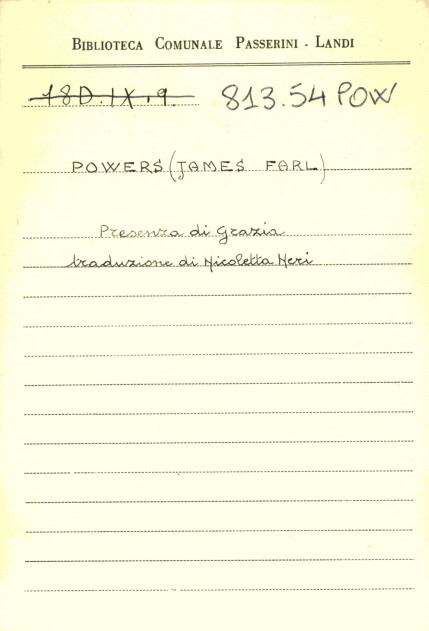 BIBLIOTECA COMUNALE PASSERINI - LANDI
18D.IX.9. 813.54 POW
POWERS (JAMES FARL)
Presenza di Grazia
traduzione di Nicoletta Neri